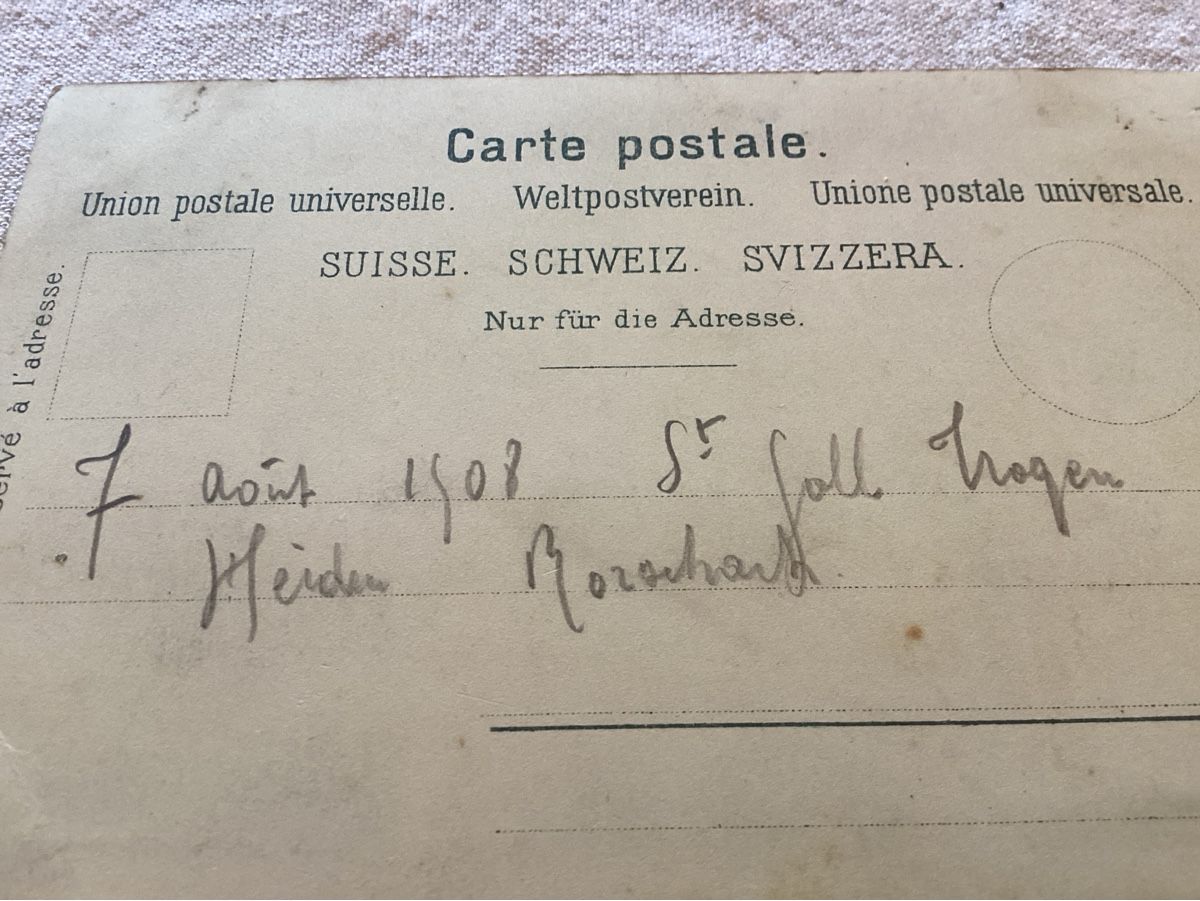 Carte postale.
Union postale universelle. Weltpostverein. Unione postale universale.
SUISSE. SCHWEIZ. SVIZZERA.
Nur für die Adresse.
à l'adresse.
7 août 1908 St Gall Trogen
Heiden Rorschach.